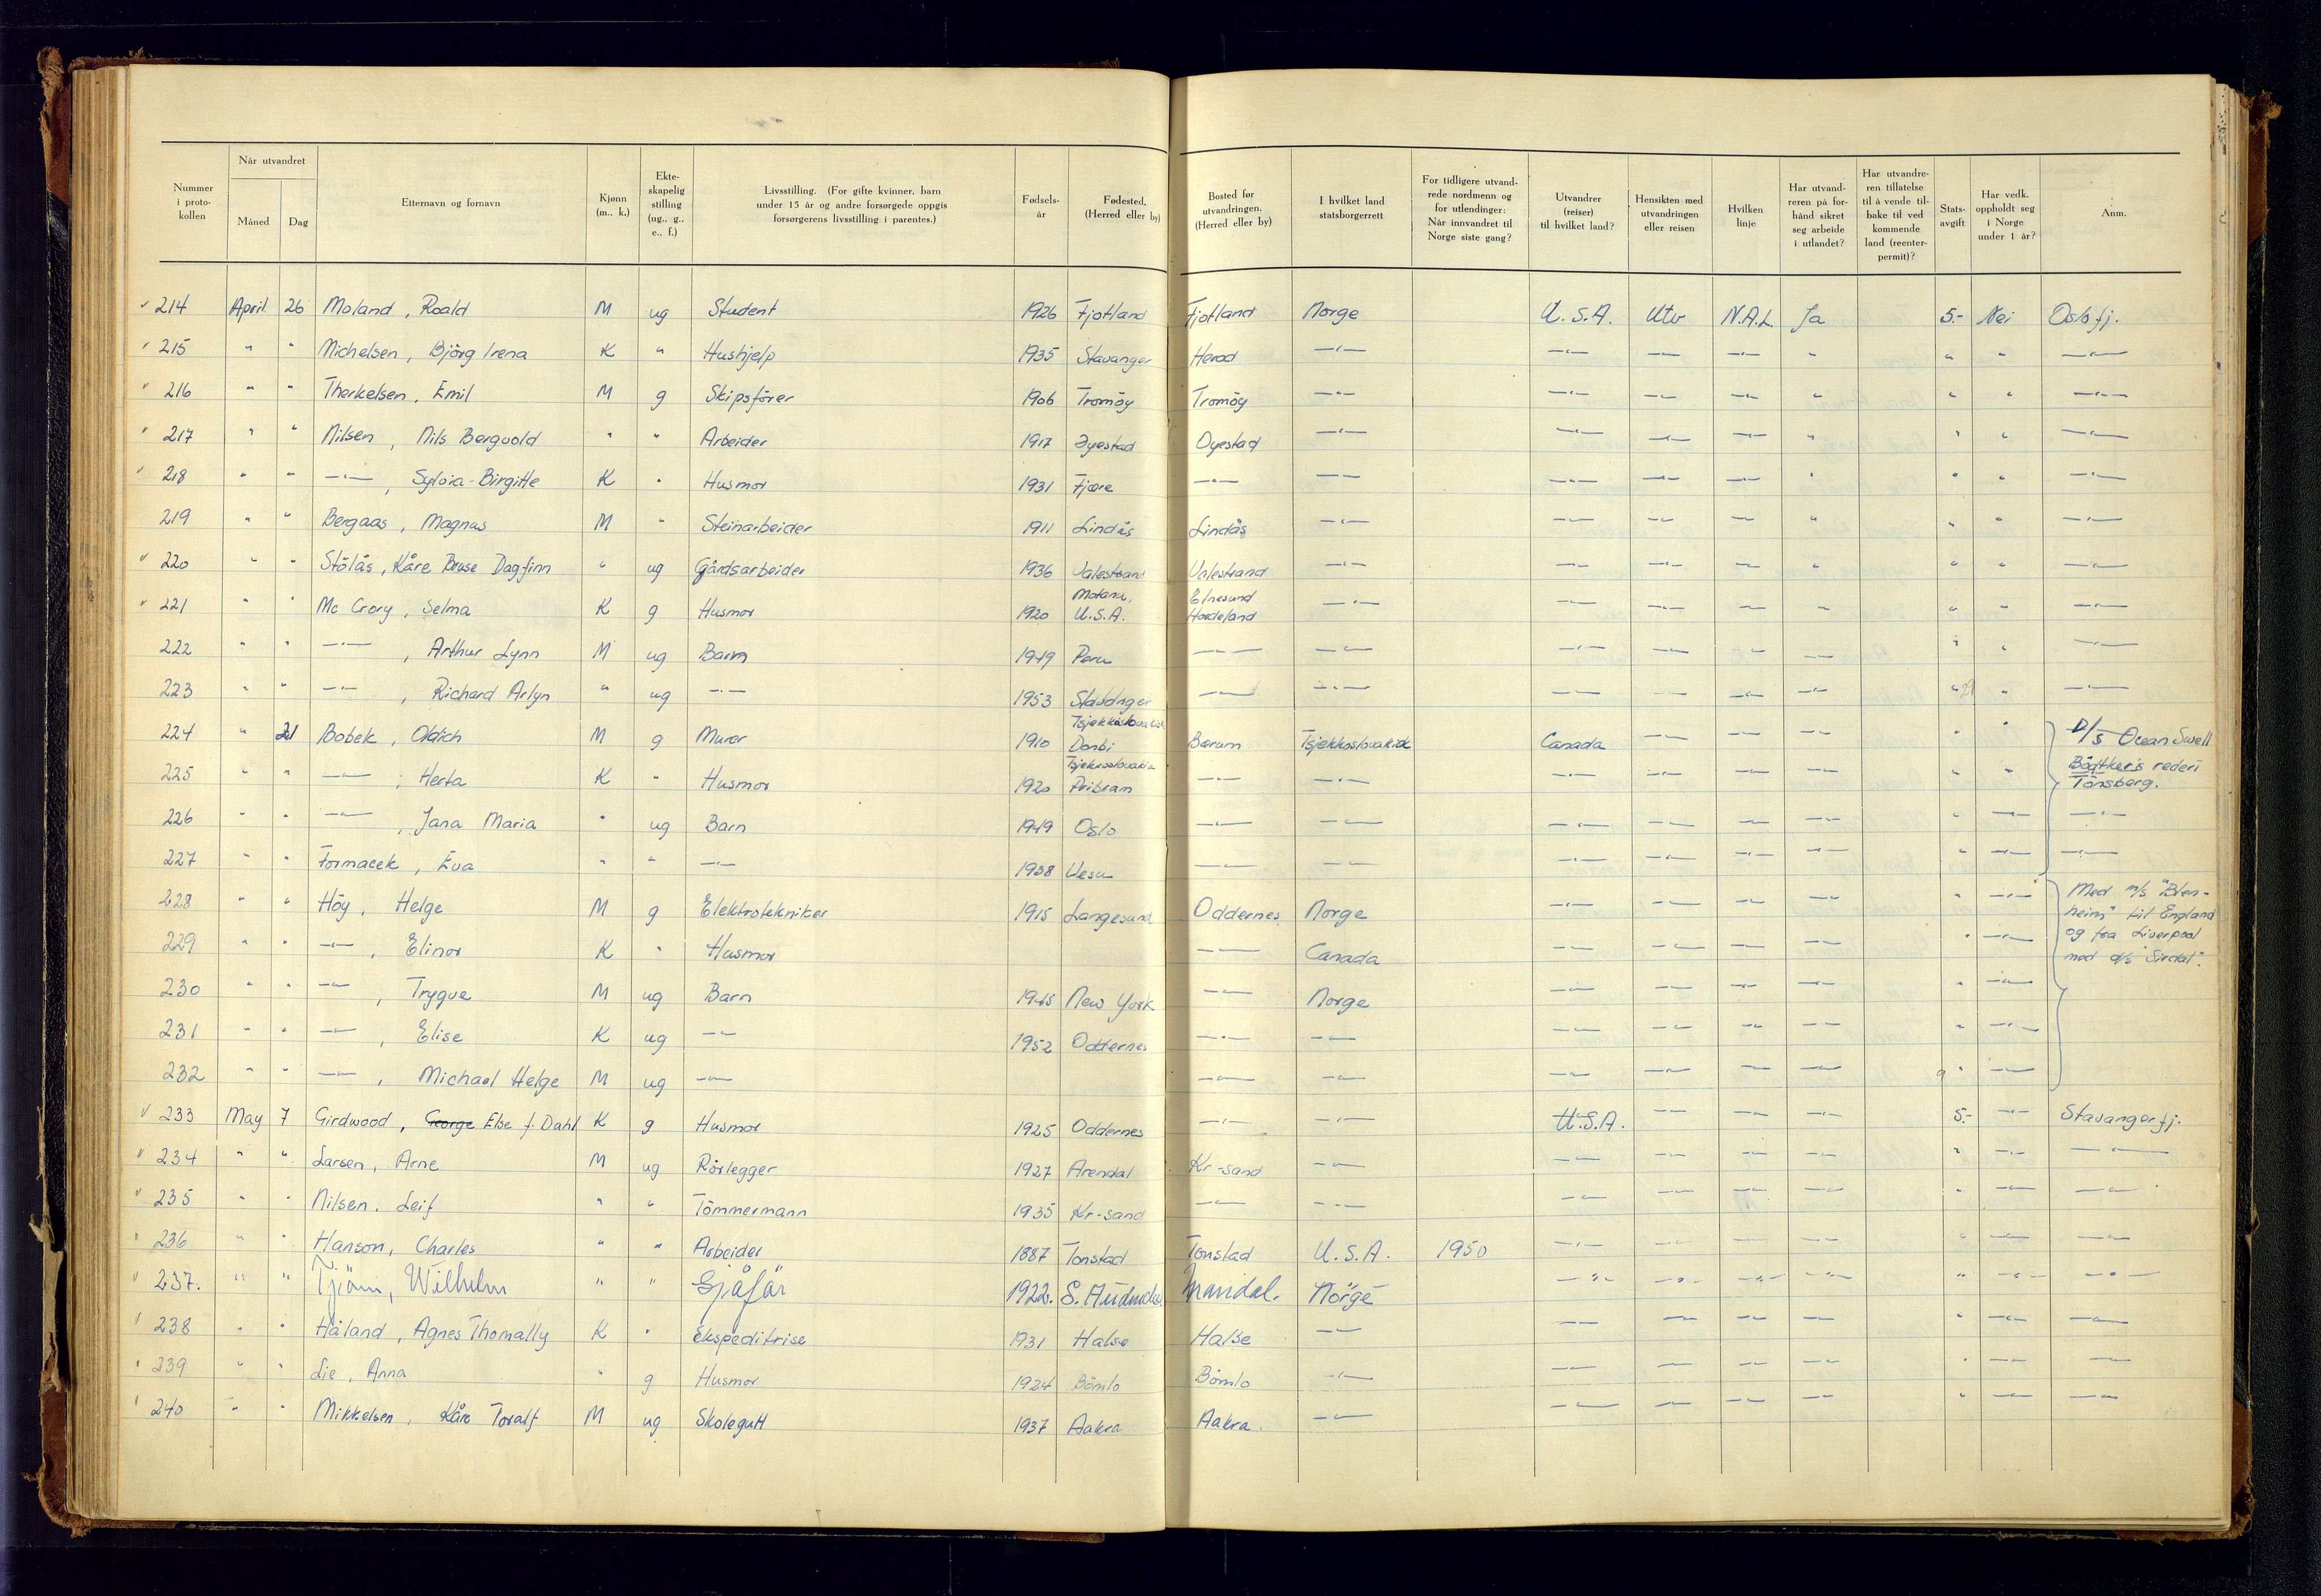 Nummer i proto- kollen | Når utvandret Måned Dag | Etternavn og fornavn | Kjønn (m., k.) | Ekte- skapelig stilling (ug., g., e., f.) | Livsstilling. (For gifte kvinner, barn under 15 år og andre forsørgede oppgis forsørgerens livsstilling i parentes.) | Fødsels- år | Fødested, (Herred eller by) | Bosted før utvandringen. (Herred eller by) | I hvilket land statsborgerrett | For tidligere utvand- rede nordmenn og for utlendinger: Når innvandret til Norge siste gang? | Utvandrer (reiser) til hvilket land? | Hensikten med utvandringen eller reisen | Hvilken linje | Har utvand- reren på for- hånd sikret seg arbeide i utlandet? | Har utvandre- ren tillatelse til å vende til- bake til ved kommende land (reenter- permit)? | Stats- avgift | Har vedk. oppholdt seg i Norge under 1 år? | Anm.
214 April 26 Moland, Roald M ug Student 1926 Fjotland Fjotland Norge U.S.A. Utv N.A.L. Ja 5.- Nei Oslofj.
215 " " Michelsen, Björg Irena K " Hushjelp 1935 Stavanger Herad —"— —"— —"— —"— " " " —"—
216 " " Therkelsen, Emil M g Skipsförer 1906 Tromöy Tromöy —"— —"— —"— —"— " " " —"—
217 " " Nilsen, Nils Bergvold " " Arbeider 1917 Øyestad Oyestad —"— —"— —"— —"— " " " —"—
218 " " —"—, Sylvia-Birgitte K " Husmor 1931 Fjære —"— —"— —"— —"— —"— " " " —"—
219 " " Bergaas, Magnus M " Steinarbeider 1911 Lindås Lindås —"— —"— —"— —"— " " " —"—
220 " " Stölås, Kåre Bruse Dagfinn " ug Gårdsarbeider 1936 Valestrand Valestrand —"— —"— —"— —"— " " " —"—
221 " " Mc Crory, Selma K g Husmor 1920 U.S.A. Hordeland —"— —"— —"— —"— " " " —"—
222 " " —"—, Arthur Lynn M ug Barn 1949 Peru —"— —"— —"— —"— —"— —"— " " —"—
223 " " —"—, Richard Arlyn " ug —"— 1953 Stavanger —"— —"— —"— —"— —"— —"— " " —"—
224 " 21 Bobek, Oldich M g Murer 1910 Tsjekkoslovakia Donbi Bærum Tsjekkoslovakia Canada —"— —"— —"— " " D/S Ocean Swell
225 " " —"—, Herta K " Husmor 1920 Tsjekkoslovakia Pribram —"— —"— —"— —"— —"— —"— " " rederi Tönsberg.
226 " " —"—, Jana Maria " ug Barn 1949 Oslo —"— —"— —"— —"— —"— —"— " —"— —"—
227 " " Formacek, Eva " " —"— 1938 —"— —"— —"— —"— —"— —"— " —"— —"—
228 " " Höy, Helge M g Elektrotekniker 1915 Langesund Oddernes Norge —"— —"— —"— —"— " —"— Med m/s "Blen- heim" til England
229 " " —"—, Elinor K " Husmor —"— Canada —"— —"— —"— —"— " —"— og fra Liverpool med d/s "Sirdal".
230 " " —"—, Trygve M ug Barn 1945 New York —"— Norge —"— —"— —"— —"— " —"—
231 " " —"—, Elise K ug —"— 1952 Oddernes —"— —"— —"— —"— —"— —"— " —"—
232 " " —"—, Michael Helge M ug —"— —"— —"— —"— —"— —"— —"— " —"—
233 May 7 Girdwood, George Else f. Dahl K g Husmor 1925 Oddernes —"— —"— U.S.A. —"— —"— —"— 5.- —"— Stavangerfj.
234 " " Larsen, Arne M ug Rörlegger 1927 Arendal Kr-sand —"— —"— —"— —"— —"— " —"— —"—
235 " " Nilsen, Leif " " Tömmermann 1935 Kr-sand —"— —"— —"— —"— —"— —"— " —"— —"—
236 " " Hanson, Charles " " Arbeider 1887 Tonstad Tonstad U.S.A. 1950 —"— —"— —"— —"— " —"— —"—
237. " " Tjöm, Wilhelm " " Sjåför 1922. S. Audnedal Mandal. Norge —"— —"— —"— —"— " —"— —"—
238 " " Håland, Agnes Thomally K " Ekspeditrise 1931 Halse Halse —"— —"— —"— —"— —"— " —"— —"—
239 " " Lie, Anna " g Husmor 1924 Bömlo Bömlo —"— —"— —"— —"— —"— " —"— —"—
240 " " Mikkelsen, Kåre Toralf M ug Skolegutt 1937 Aakra Aakra. —"— —"— —"— —"— —"— " —"— —"—